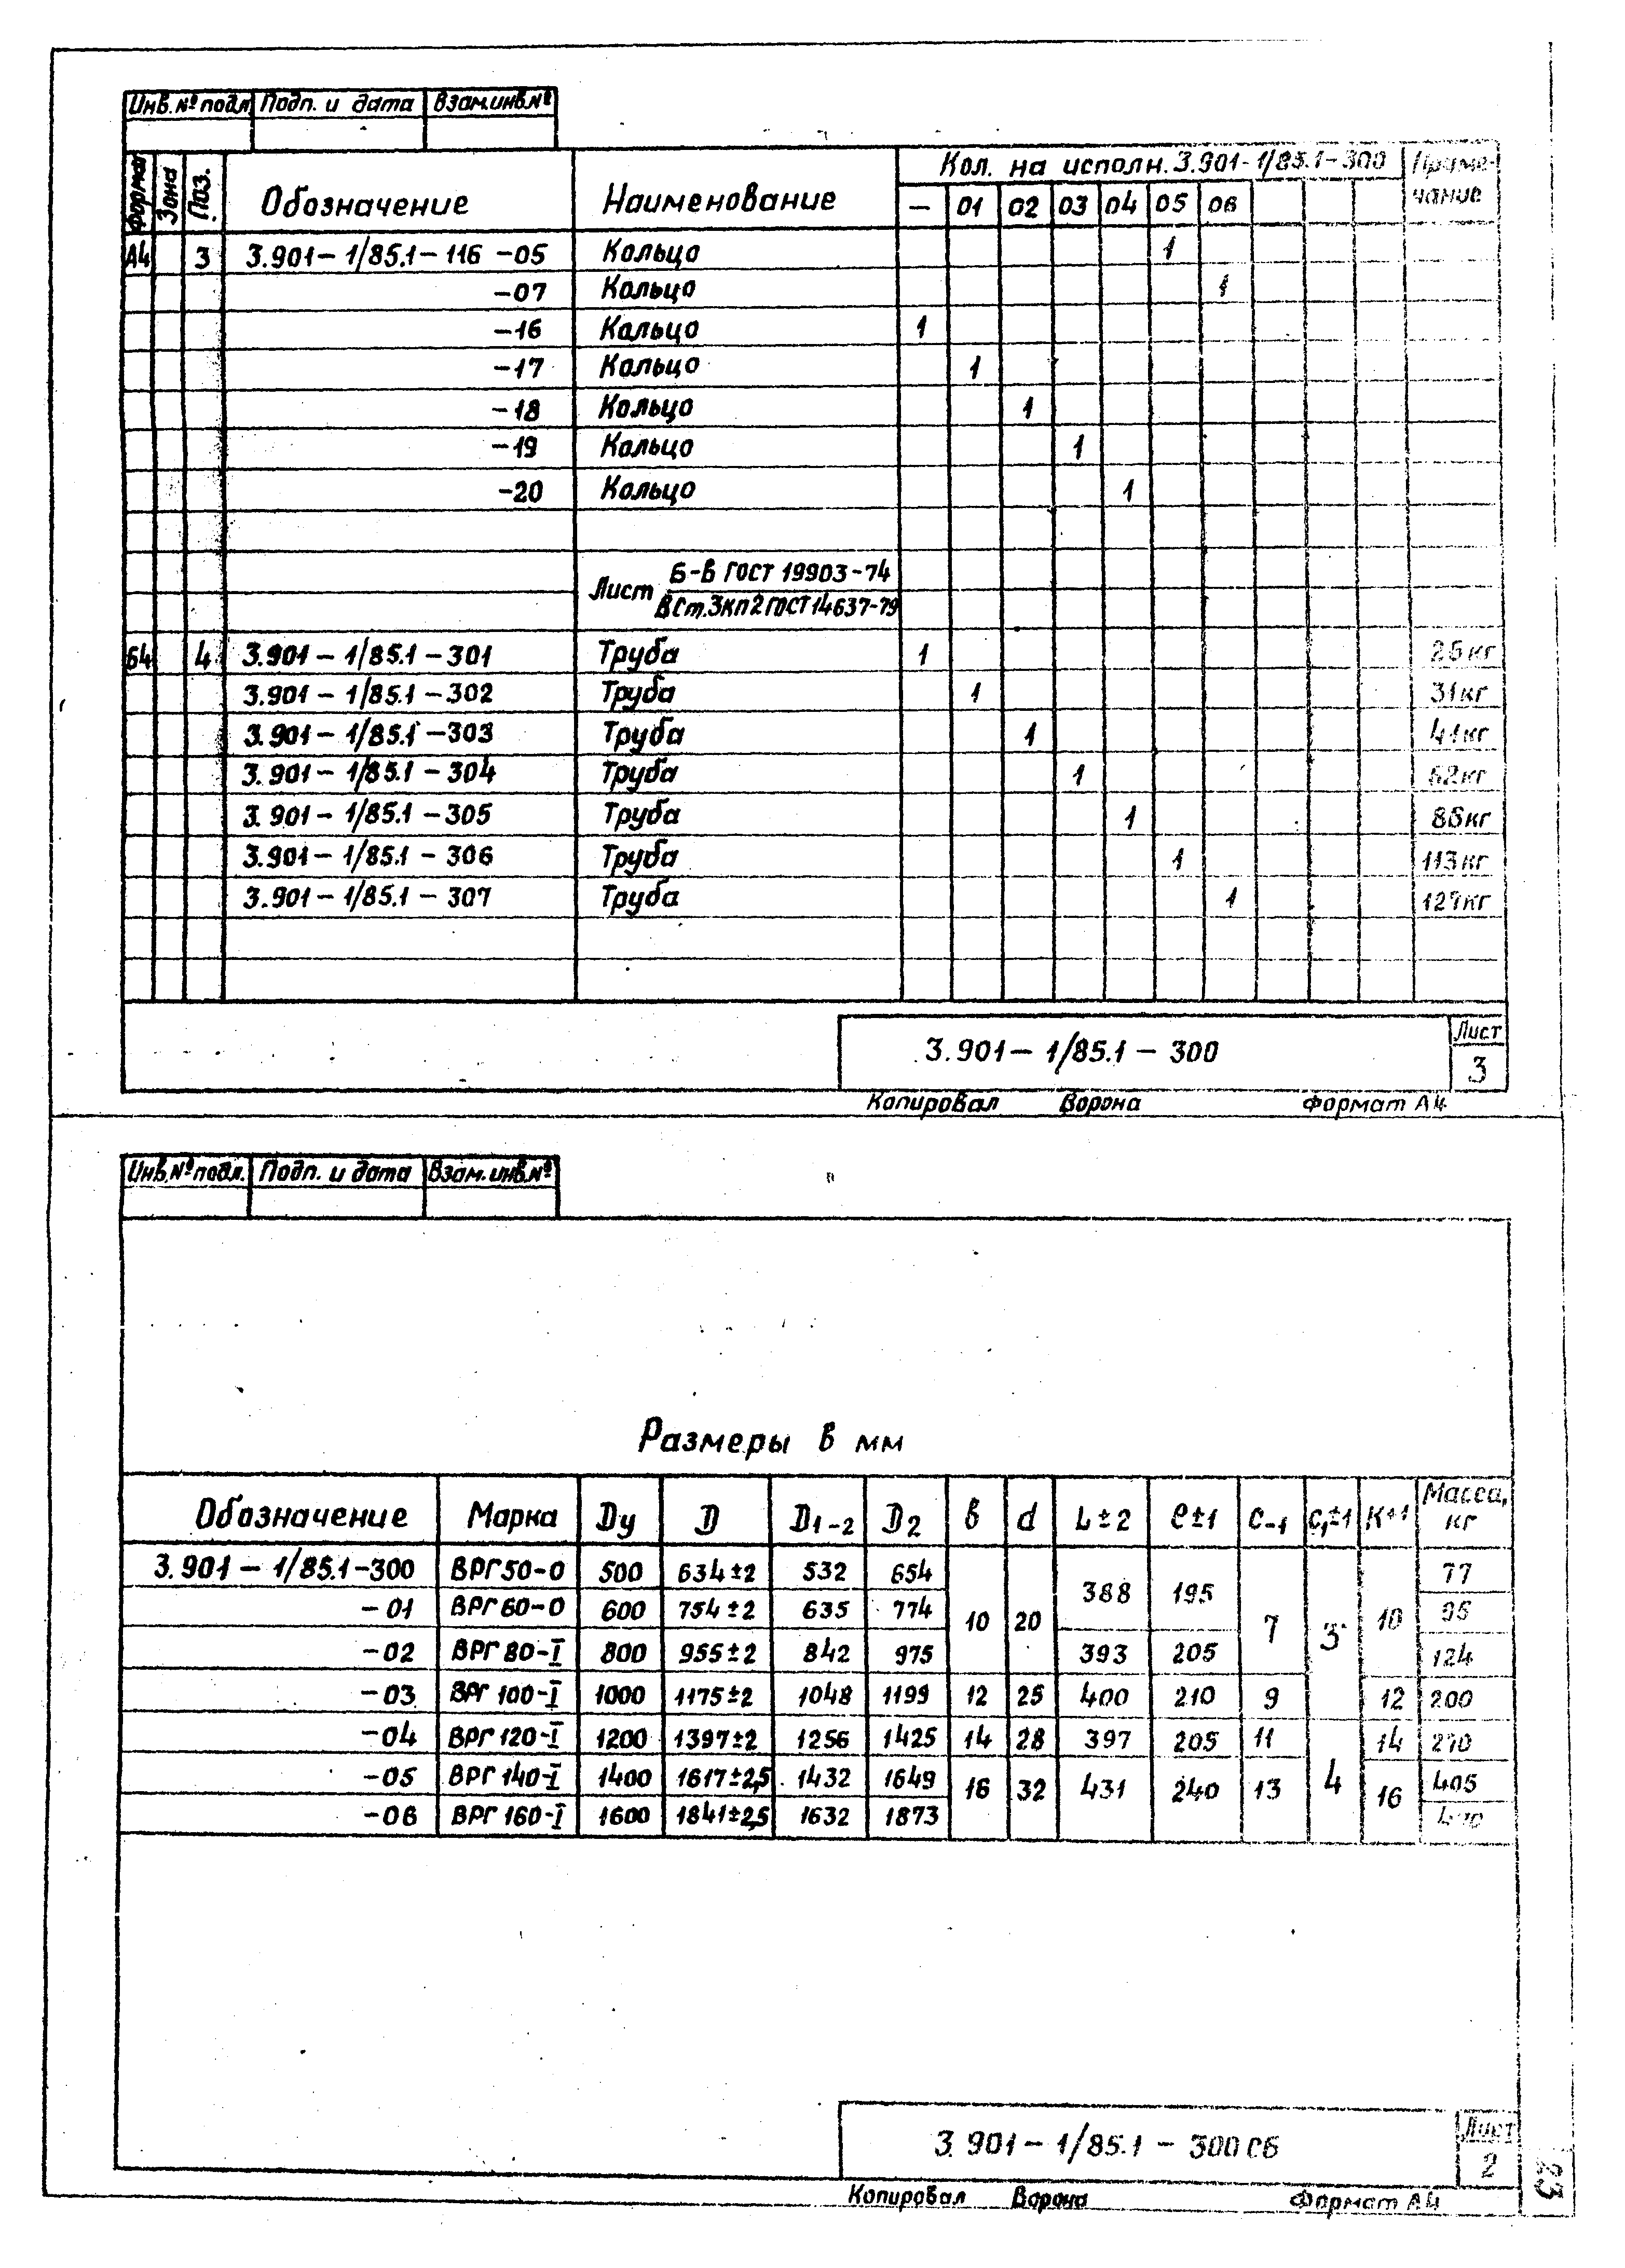 Инв.№ подл. Подп. и дата Взам.инв.№
Формат Зона Поз. Обозначение Наименование Кол. на исполн. 3.901-1/85.1-300 Приме-чание
— 01 02 03 04 05 06
А4 3 3.901-1/85.1-116 -05 Кольцо 1
-07 Кольцо 1
-16 Кольцо 1
-17 Кольцо 1
-18 Кольцо 1
-19 Кольцо 1
-20 Кольцо 1
Лист Б-В ГОСТ 19903-74
ВСт.3кп2 ГОСТ 14637-79
Б4 4 3.901-1/85.1-301 Труба 1 кг
3.901-1/85.1-302 Труба 1 31кг
3.901-1/85.1-303 Труба 1 41кг
3.901-1/85.1-304 Труба 1 кг
3.901-1/85.1-305 Труба 1 кг
3.901-1/85.1-306 Труба 1 113кг
3.901-1/85.1-307 Труба 1 кг
3.901-1/85.1-300 Лист
3
Копировал Ворона Формат А4
Инв.№ подл. Подп. и дата Взам.инв.№
Размеры в мм
Обозначение Марка Dу D D1-2 D2 в d L±2 ℓ±1 C-1 C1±1 K+1 Масса, кг
3.901-1/85.1-300 ВРГ50-0 500 634±2 532 654 10 20 388 195 7 3 10 77
-01 ВРГ60-0 600 754±2 635 774
-02 ВРГ80-I 800 955±2 842 975 393 205 124
-03 ВРГ100-I 1000 1175±2 1048 1199 12 25 400 210 9 12 200
-04 ВРГ120-I 1200 1397±2 1256 1425 14 28 397 205 11 4 14
-05 ВРГ140-I 1400 1617±2,5 1432 1649 16 32 431 240 13 16 405
-06 ВРГ160-I 1600 1841±2,5 1632 1873
3.901-1/85.1-300СБ Лист
2
Копировал Ворона Формат А4
23